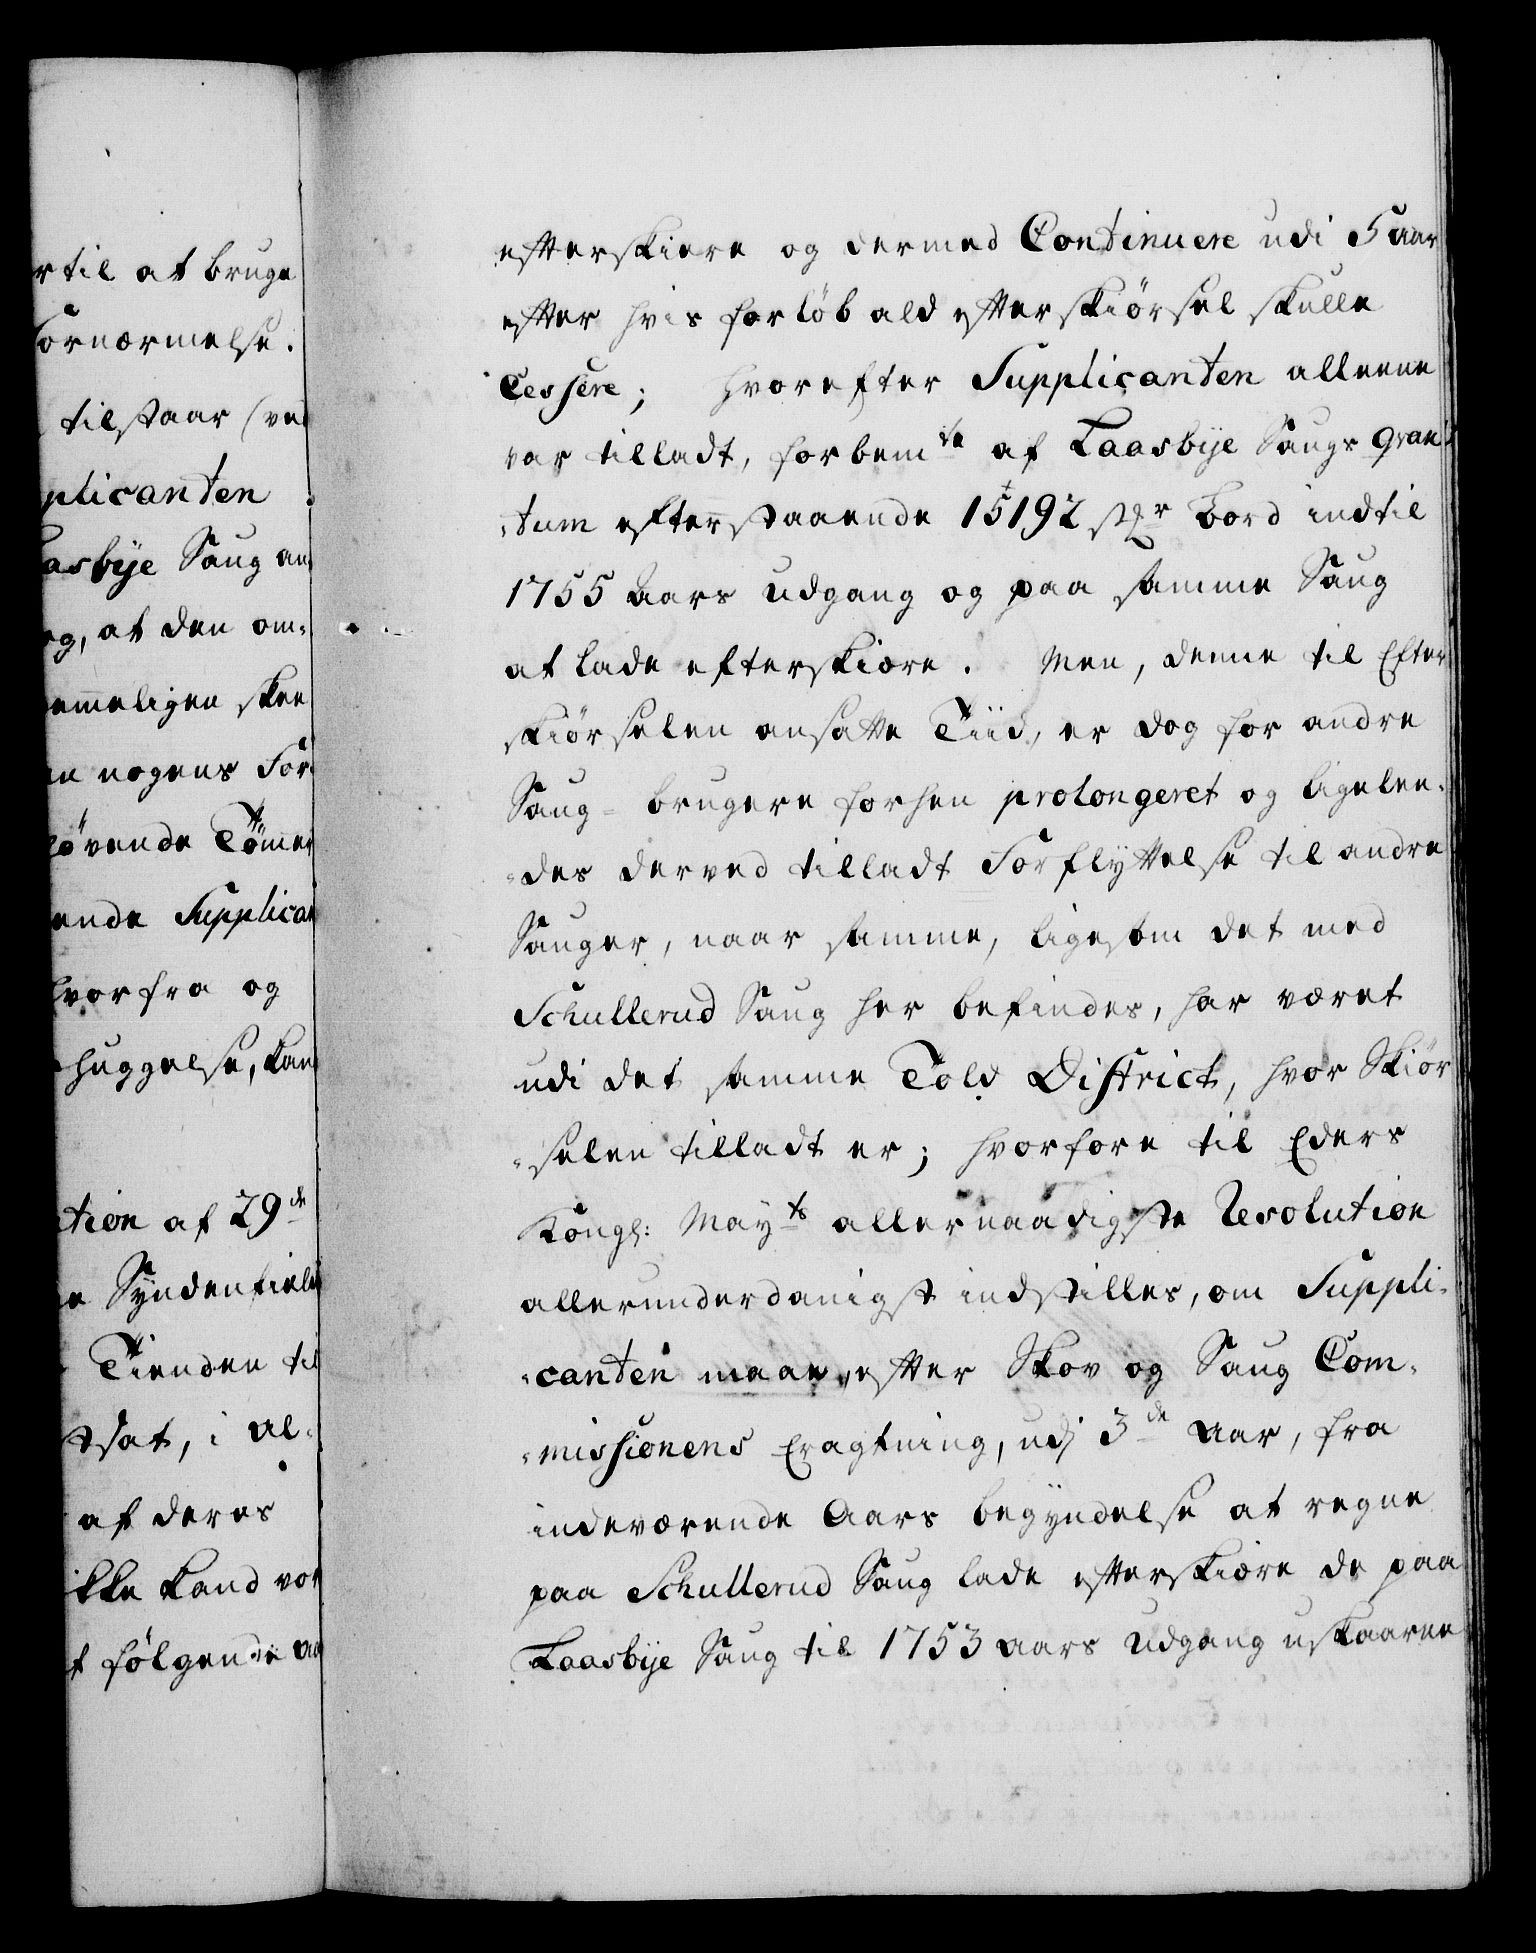 rtil at bruge
Fornærmelse.
tilstaar (ved
plicanten
asbÿe Saug an
og, at den om-
emmeligen skee
en nogens For-
øvende Tömer
ende Supplican
hvorfra og
huggelse, kan
tion af 29de
e Sÿndentiels
Tienden til
tsat, i Al-
af deres
ikke kand vor
t følgende Aa
efterskiere og dermed Continuere udi 5 aar
efter hvis forløb ald efterskiørsel skulle
Cessere; hvorefter Supplicanten alleene
var tilladt, forbemte af Laasbÿe Saugs qvan-
-tum efterstaaende 15192 stkr Bord indtil
1755 Aars Udgang og paa samme Saug
at lade efterskiære. Men, denne til Efter
skiørselen ansatte Tiid, er dog for andre
Saug-brugere forhen prolongeret og ligelee-
-des derved tilladt Forflÿttelse til andre
Sauger, naar samme, ligesom det med
Schullerud Saug her befindes, har været
udi det samme Told District, hvor Skiør
-selen tilladt er; hvorfore til Eders
Kongl: Mayts allernaadigste Resolution
allerunderdanigst indstilles, om Suppli-
-canten maae, efter Skov og Saug Com-
-missionens Eragtning, udj 3de Aar, fra
indeværende Aars begÿndelse at regne
paa Schullerud Saug lade efterskiære de paa
Laasbÿe Saug til 1753 Aars Udgang uskaarne